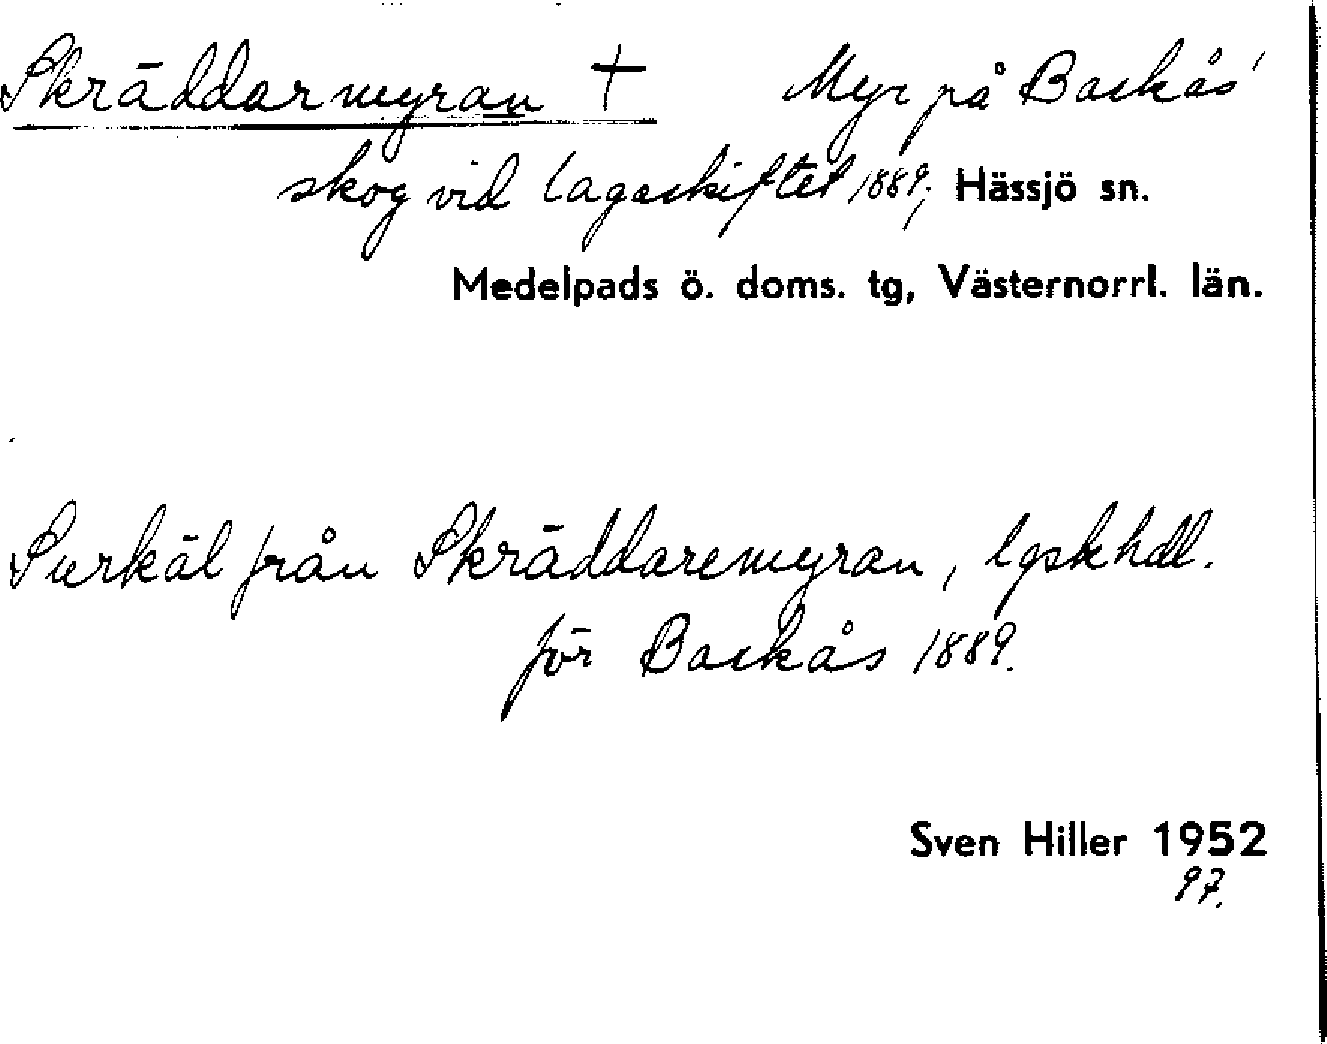 Skräddarmyran † Myr på Backås'
skog vid lagaskiftet 1889; Hässjö sn.
Medelpads ö. doms. tg, Västernorrl. län.
Surkäl från Skräddaremyran, lgskhdl.
för Backås 1889.
Sven Hiller 1952
97.